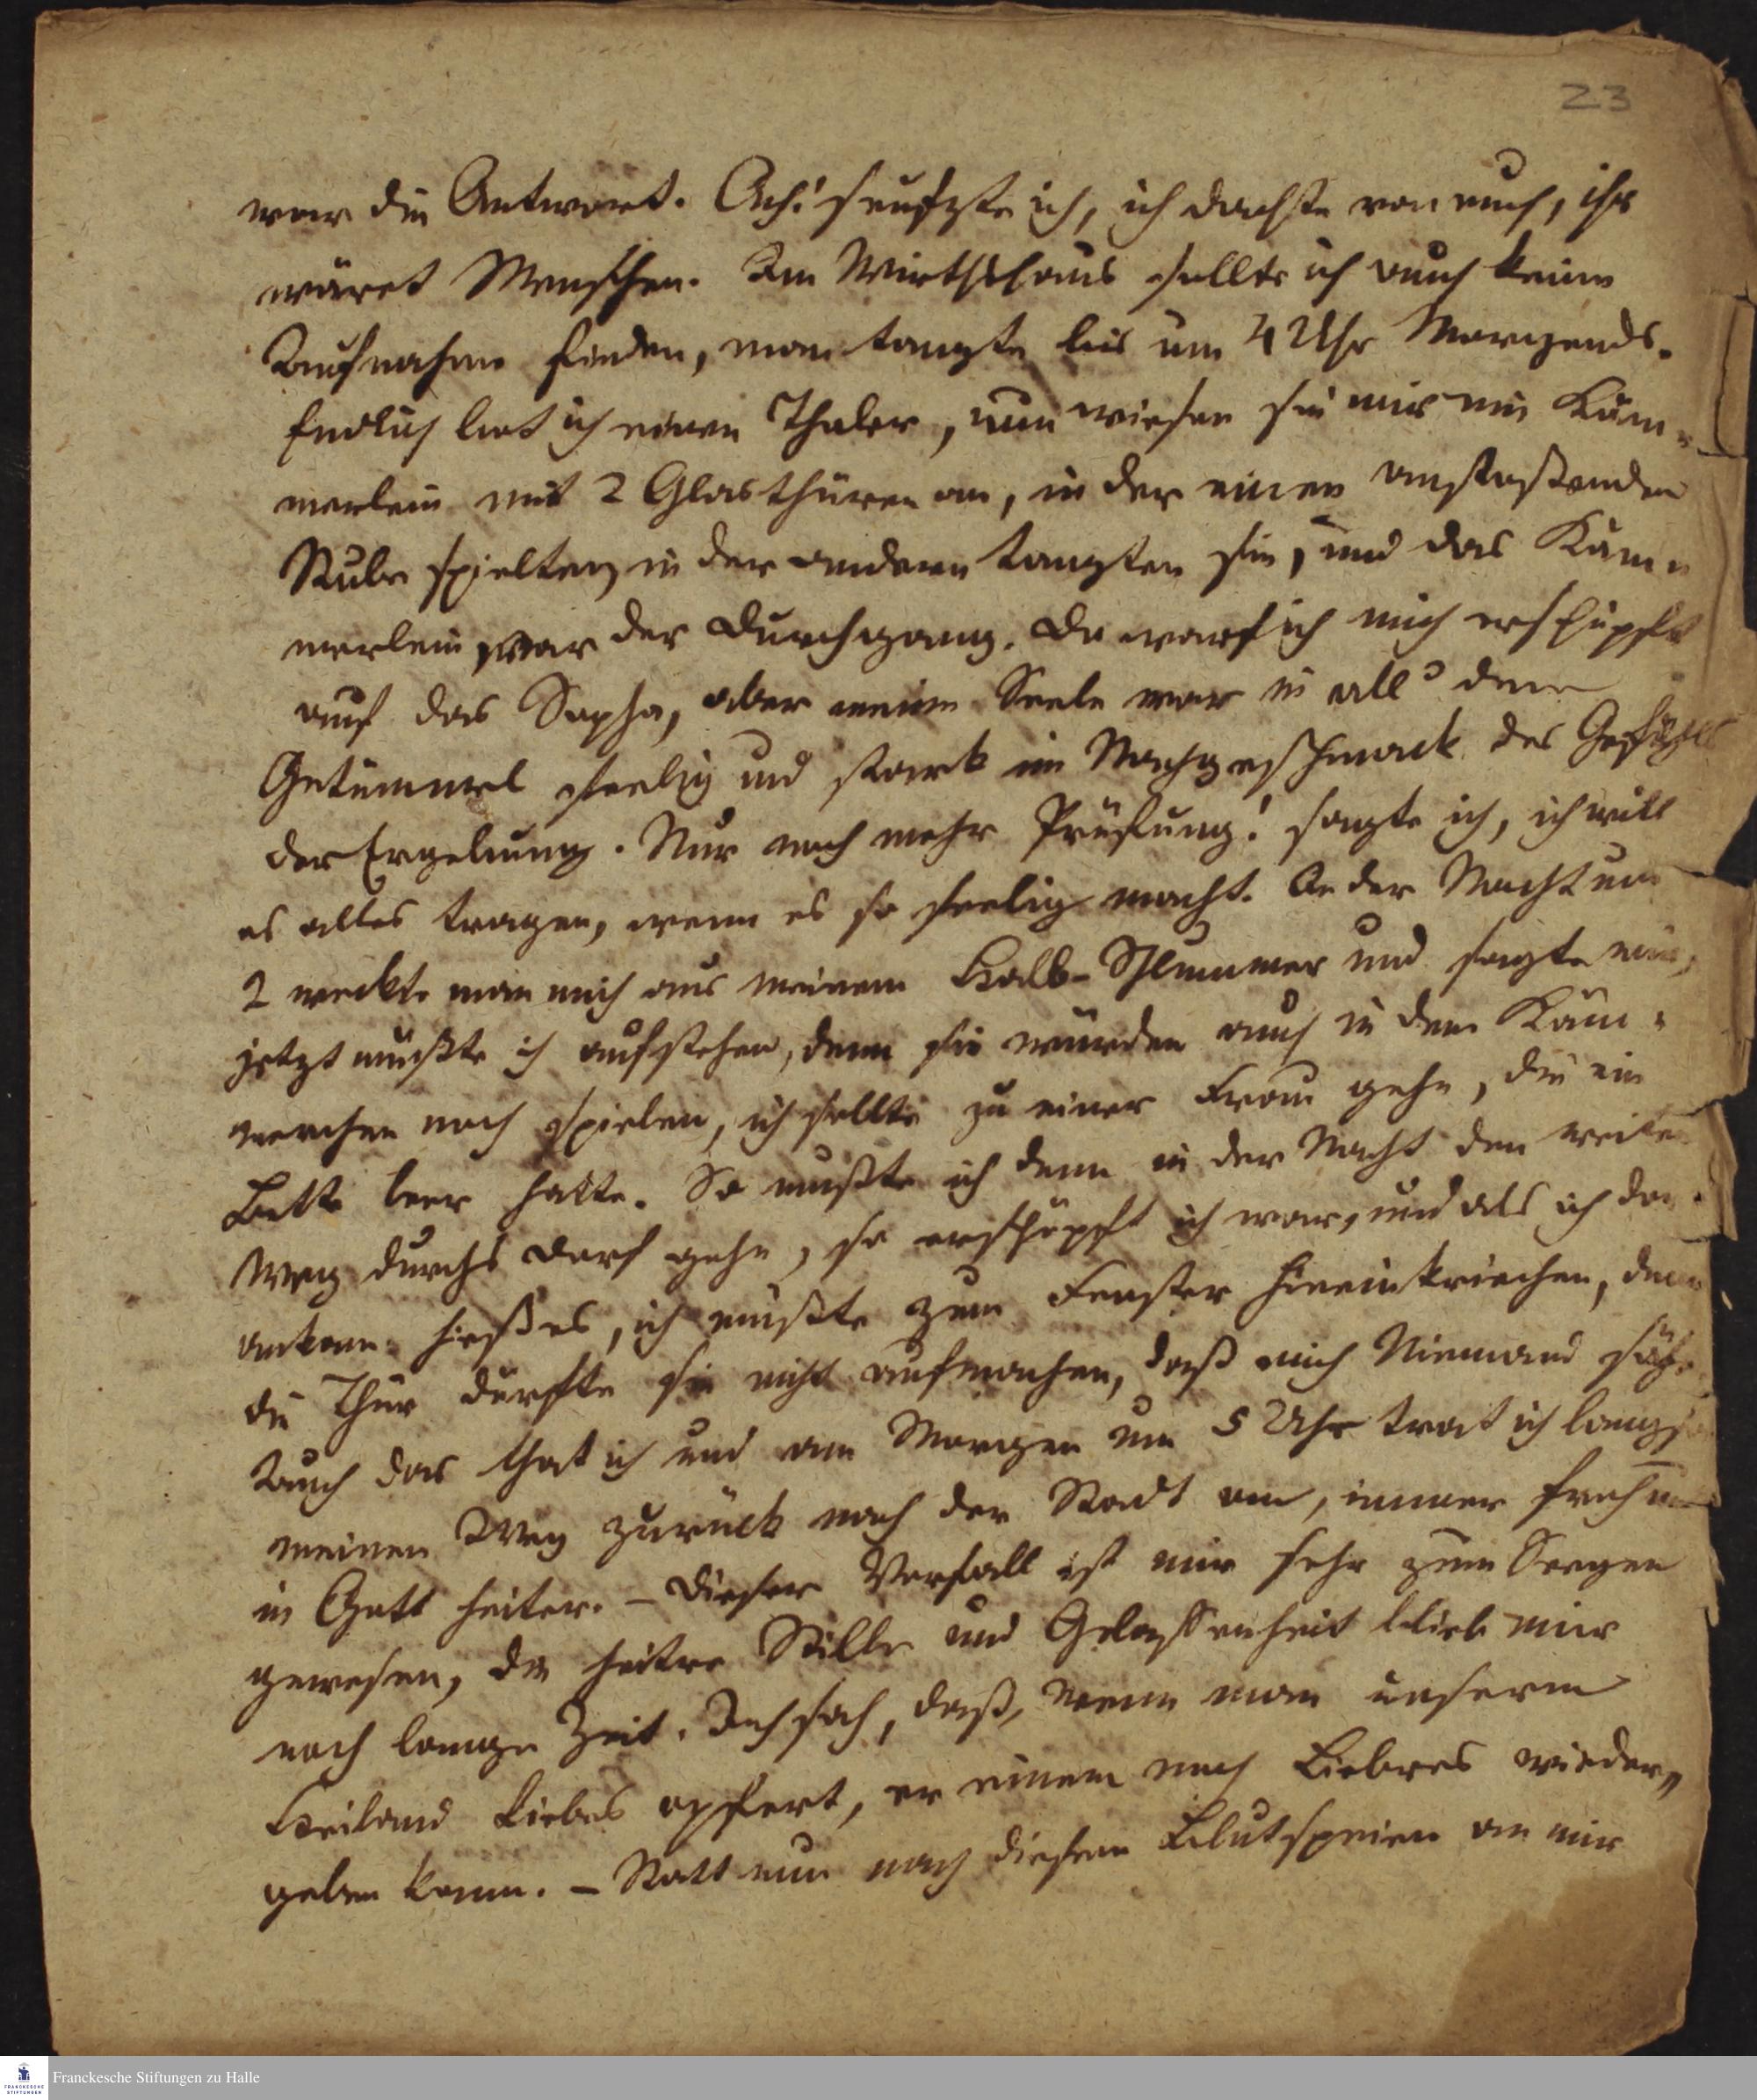 23
war die Antwort. Ach! seufzte ich, ich dachte von euch, ihr
wäret Menschen. Im Wirthshaus sollte ich auch keine
Aufnahme finden, man tanzte bis um 4 Uhr Morgends.
Endlich bot ich einen Thaler, nun wiesen sie mir ein Käm-
merlein mit 2 Glasthüren an, in der einen anstoßenden
Stube spielten, in der andern tanzten sie, und das Käm-
merlein war der Durchgang. Da warf ich mich erschöpft
auf das Sopha, aber meine Seele war in all' dem
Getümmel seelig und stark im Nachgeschmack des Gefühls
der Ergebung. Nur noch mehr Prüfung! sagte ich, ich will
es alles tragen, wenn es so seelig macht. In der Nacht um
2 weckte man mich aus meinem Halb-Schlummer und sagte mir,
jetzt müßte ich aufstehen, denn sie würden auch in dem Käm-
merchen noch spielen, ich sollte zu einer Frau gehn, die ein
Bette leer hatte. So mußte ich denn in der Nacht den weiten
Weg durchs Dorf gehn, so erschöpft ich war, und als ich da
ankam hieß es, ich müßte zum Fenster hineinkriechen, denn
die Thür dürfte sie nicht aufmachen, daß mich Niemand sähe.
Auch das that ich und am Morgen um 5 Uhr trat ich langsam
meinen Weg zurück nach der Stadt an, immer froh und
in Gott heiter. – Dieser Vorfall ist mir sehr zum Seegen
gewesen, die heitre Stille und Gelassenheit blieb mir
noch lange Zeit. Ich sah, daß, wenn man unserm
Heiland Liebes opfert, er einem noch Lieberes wieder
geben kann. – Statt nun nach diesem Blutspeien an mir
Franckesche Stiftungen zu Halle
FRANCKESCHE
STIFTUNGEN